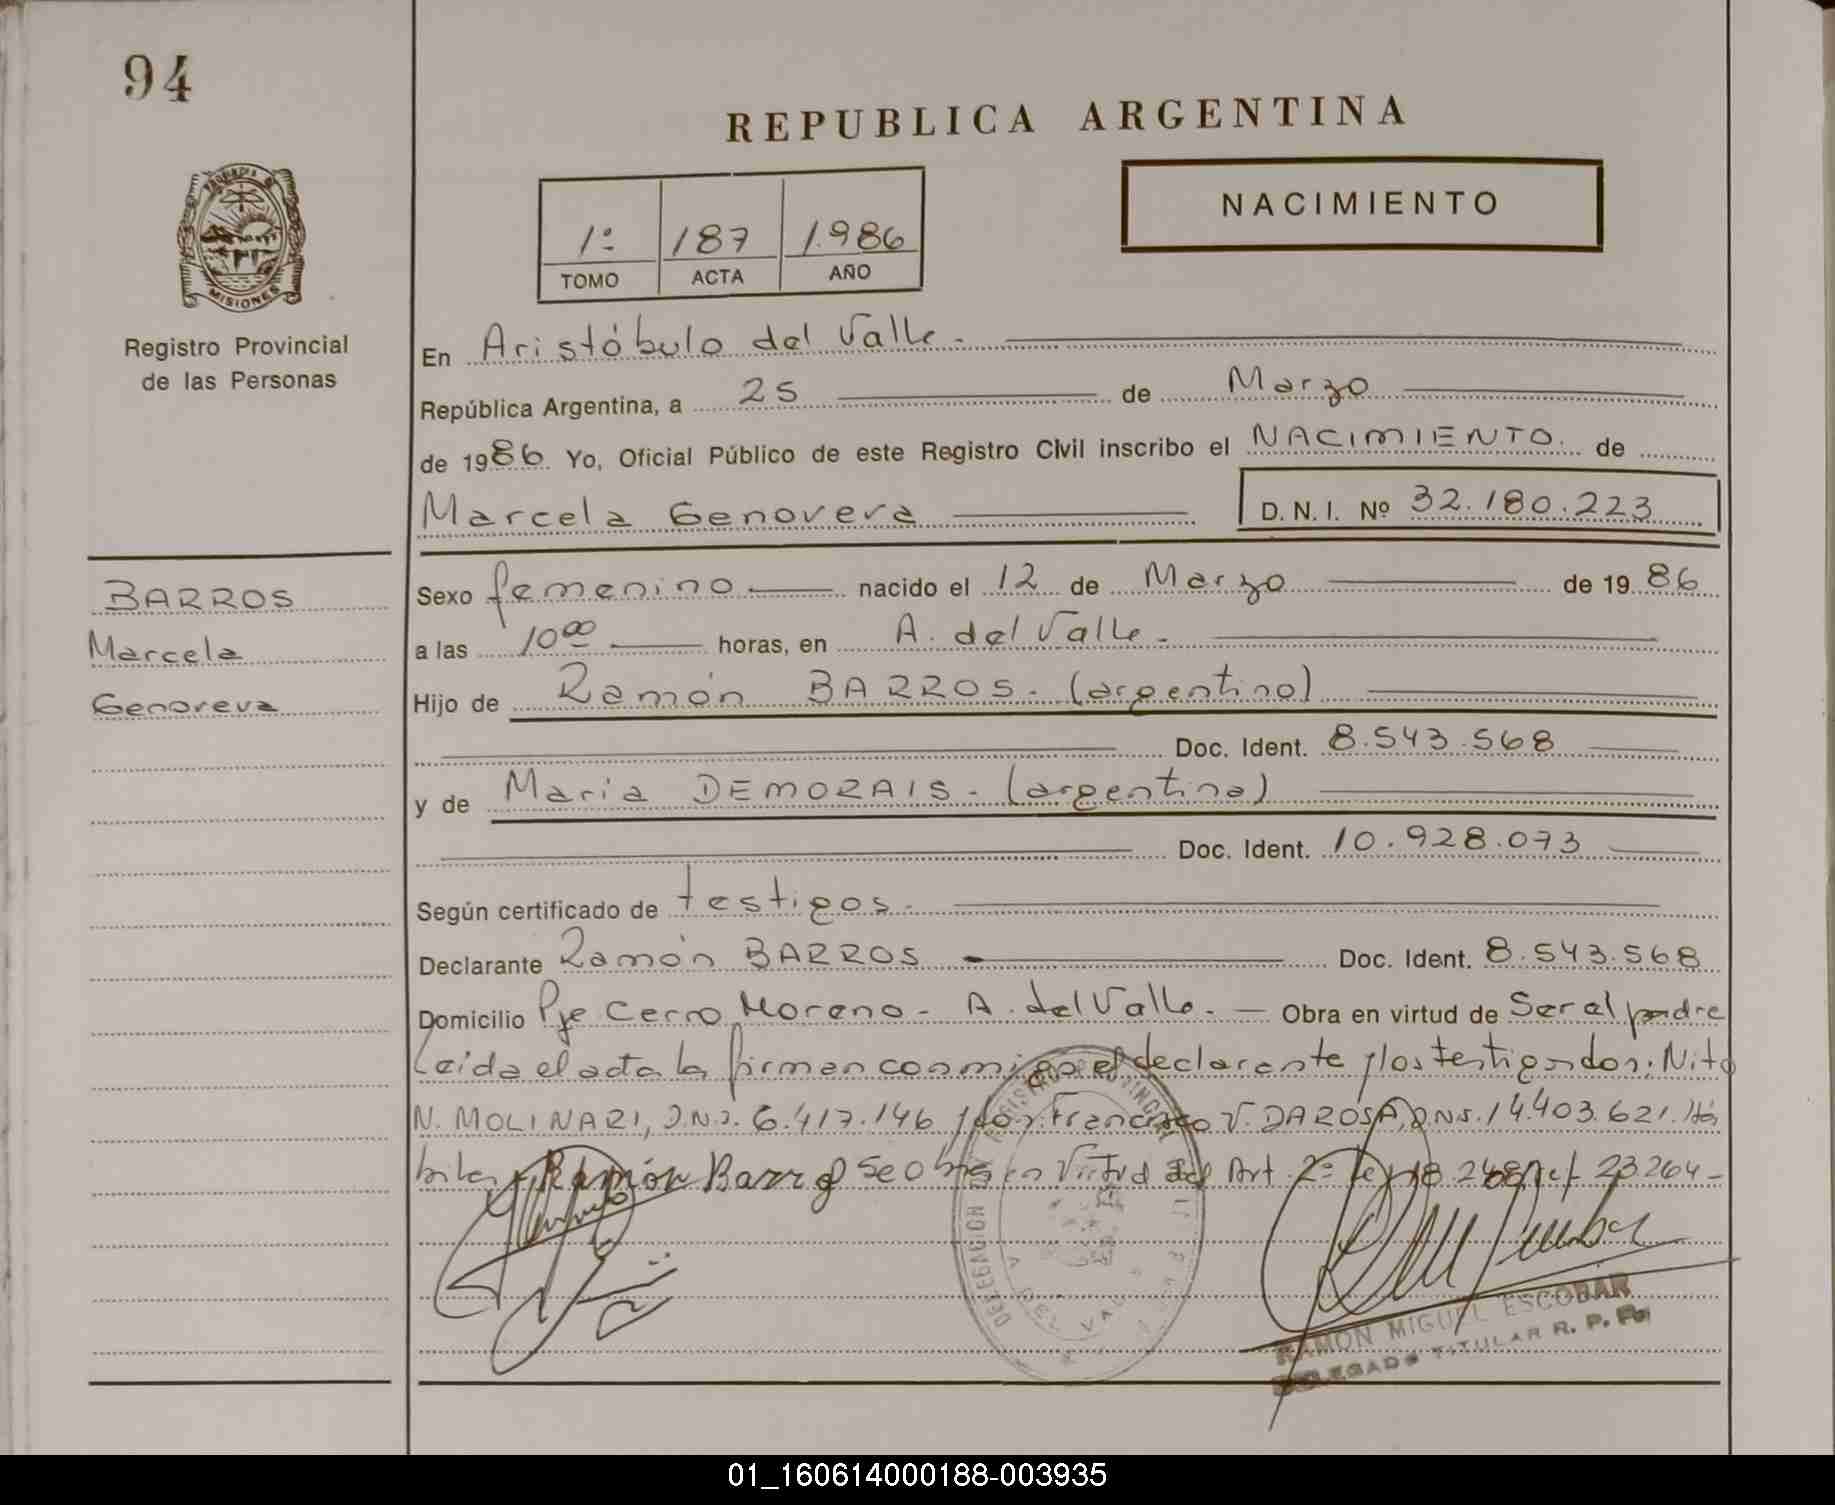 94
REPUBLICA ARGENTINA
NACIMIENTO
1º 187 1.986
TOMO ACTA AÑO
MISIONES
Registro Provincial
de las Personas
En Aristóbulo del Valle.-
República Argentina, a 25 de Marzo
de 1986. Yo, Oficial Público de este Registro Civil inscribo el NACIMIENTO. de
Marcela Genoveva D. N. I. Nº 32.180.223
BARROS
Marcela
Genoveva
Sexo femenino nacido el 12 de Marzo de 1986
a las 10 00 horas, en A. del Valle.-
Hijo de Ramón BARROS.- (argentino)
Doc. Ident. 8.543.568
y de Maria DEMORAIS.- (argentina)
Doc. Ident. 10.928.073
Según certificado de testigos.-
Declarante Ramón BARROS Doc. Ident. 8.543.568
Domicilio Pje Cerro Moreno - A. del Valle.- Obra en virtud de Ser el padre
Leida el acta la firman conmigo el declarante y los testigos don: Nito
N. MOLINARI, D.N.I. 6.417.146 y don: Francisco V. DAROSA, D.N.I. 14.403.621. Há
biles.- Ramón Barros Se obra en Virtud del Art. 2º Ley 18.248 23264-
DELEGACION
A. DEL VALLE
RAMON MIGUEL ESCOBAR
DELEGADO TITULAR R. P. P.
01_160614000188-003935